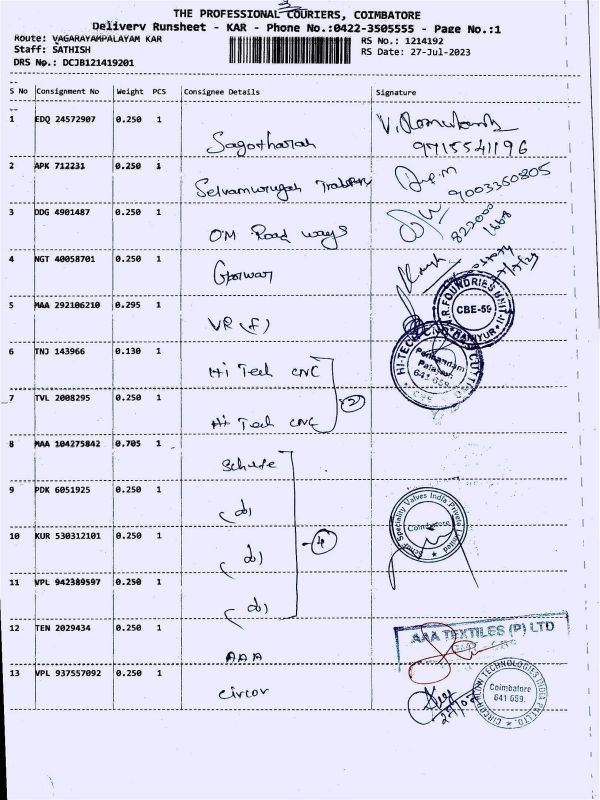 THE PROFESSIONAL COURIERS, COIMBATORE
Delivery Runsheet - KAR - Phone No.:0422-3505555 - Page No.:1
Route: VAGARAYAMPALAYAM KAR
RS No.: 1214192
Staff: SATHISH
RS Date: 27-Jul-2023
DRS No.: DCJB121419201
S No Consignment No Weight PCS Consignee Details Signature
1 EDQ 24572907 0.250 1
Sagotharan 9715541196
2 APK 712231 0.250 1
Selvamurugan 9003350805
3 DDG 4901487 0.250 1
OM Road ways 822000 1668
4 NGT 40058701 0.250 1
R.R. FOUNDRIES UNIT-II
CBE-59
5 MAA 292106210 0.295 1
VR (F)
6 TNJ 143966 0.130 1
Hi Tech CNC
HI-TECH CNC CUTTING
641 659
7 TVL 2008295 0.250 1
2
Hi Tech CNC
8 MAA 104275842 0.705 1
9 PDK 6051925 0.250 1
(do)
Speciality Valves India Private Limited
Coimbatore
10 KUR 530312101 0.250 1
4
(do)
11 VPL 942389597 0.250 1
(do)
12 TEN 2029434 0.250 1
AAA TEXTILES (P) LTD
AAA
13 VPL 937557092 0.250 1
Circor
CIRCOR FLOW TECHNOLOGIES INDIA PVT LTD
Coimbatore
641 659.